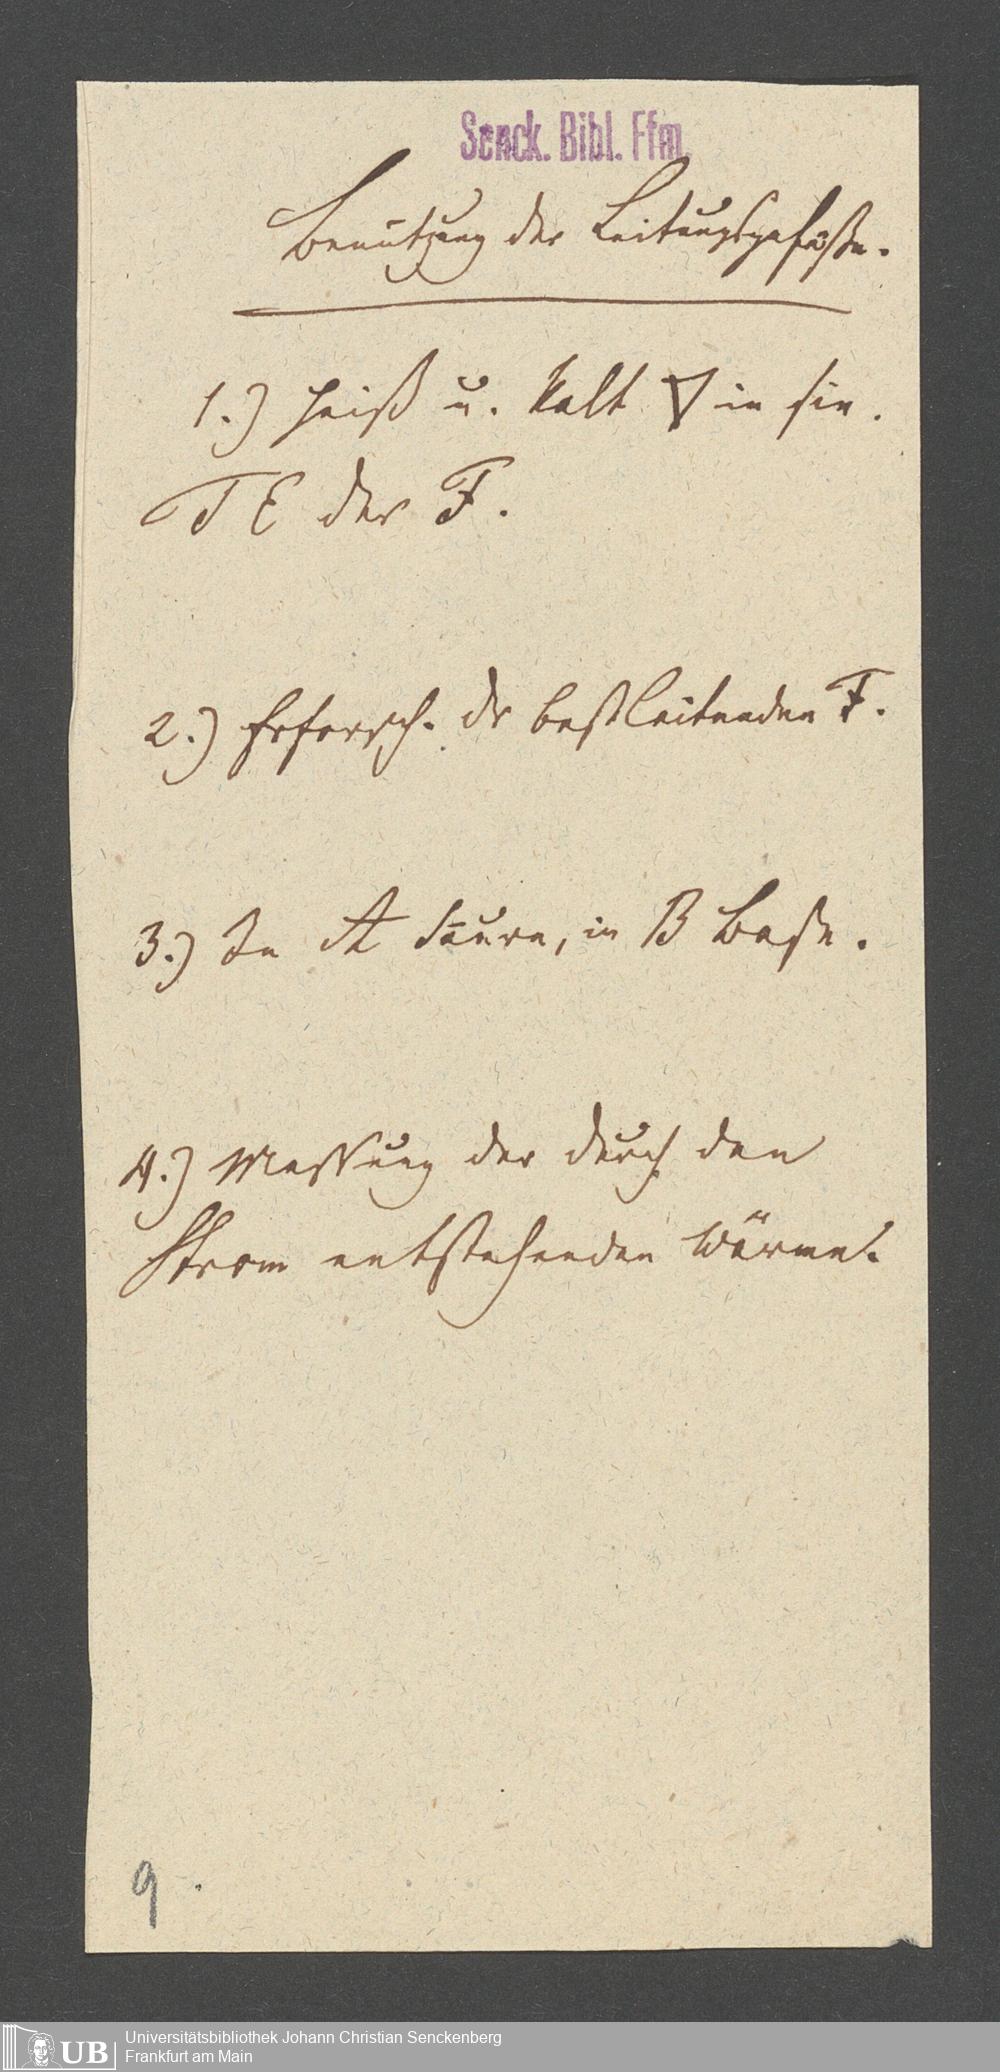 Senck. Bibl. Ffm.
Benützung der Leitungsgefäße.
1.) Heiß u. kalt ▽ in ein.
TE der F.
2.) Erforsch. dr bestleitenden F.
3.) In A Säure, in B Base.
4.) Messung der durch den
Strom entstehenden Wärme.
9.
UB
Universitätsbibliothek Johann Christian Senckenberg
Frankfurt am Main